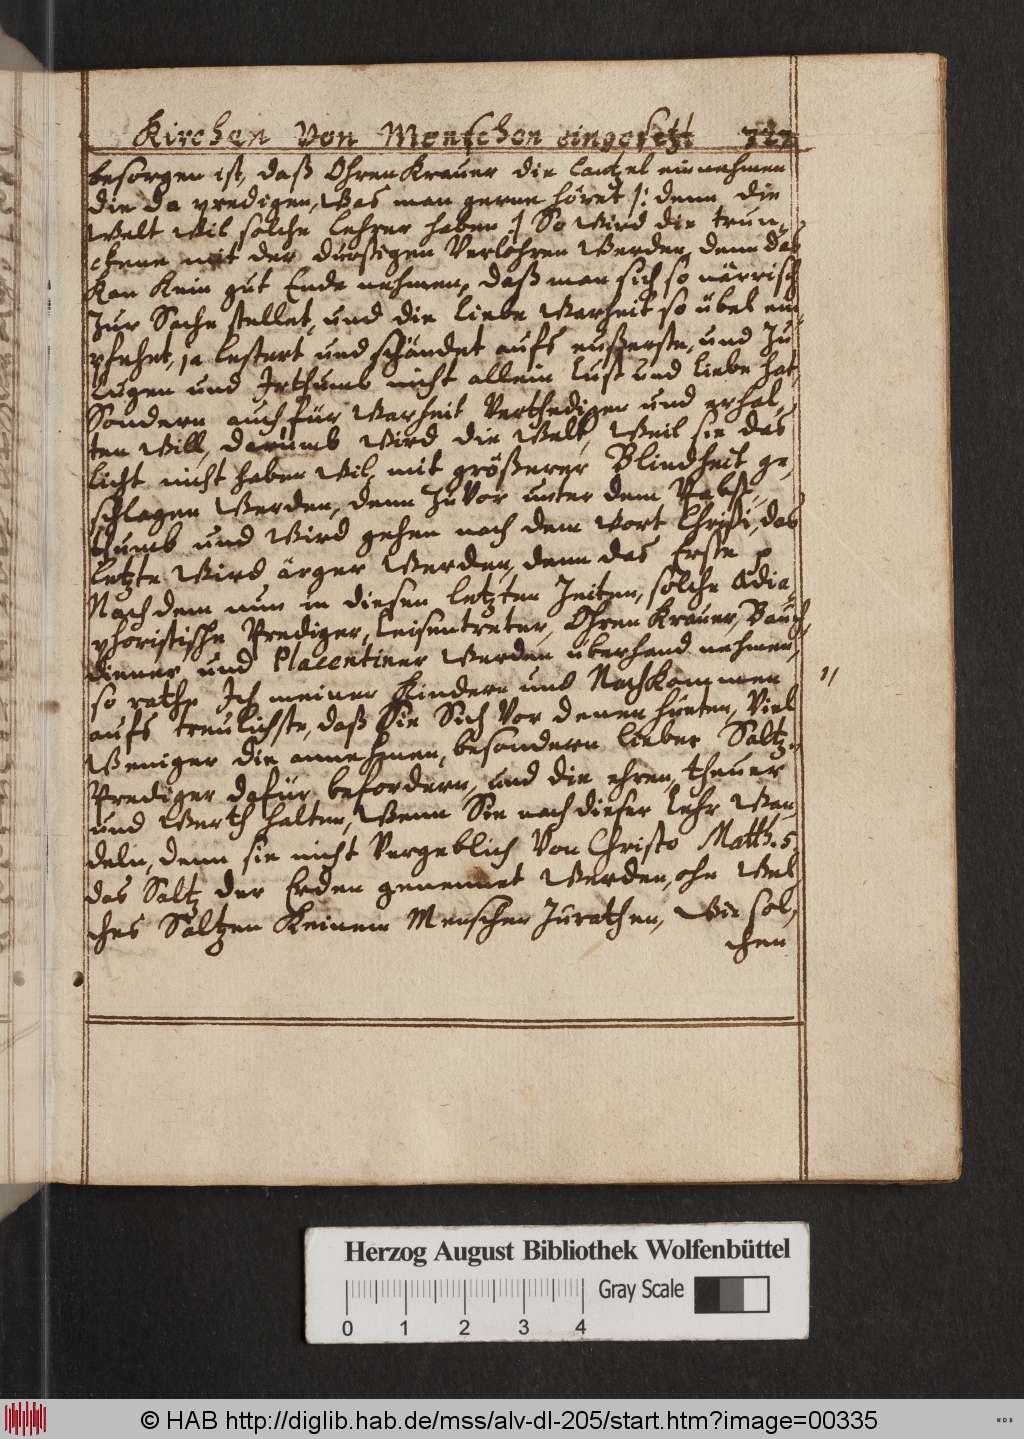 Kirchen Von Menschen eingesetzt 727
besorgen ist, daß Ohren Krauer die Cantzel einnehmen
die da predigen, Was man gerne höret /: denn die
Welt Wil solche Lehrer haben :/ So Wird die trun-
ckene mit der durstigen Verlohren Werden, denn das
Kan Kein gut Ende nehmen, daß man sich so närrisch
Zur Sache stellet, und die liebe Warheit so übel em-
pfehet, ja lestert und schändet aufs eußerste, und Zu
Lugen und Irthumb nicht allein lust und liebe hat,
Sondern auch für Warheit Verthedigen und erhal-
ten Will, darumb Wird die Welt, Weil sie das
licht nicht haben Wil, mit größerer Blindheit ge-
schlagen Werden, denn ZuVor unter dem Pabst-
thumb und Wird gehen nach dem Wort Christi, das
letzte Wird ärger Werden, denn das Erste p
Nach dem nun in diesen letzten Zeiten, solche Adia-
phoristische Prediger, Leisentreter, Ohren Krauer, Bauch-
diener und Placentiner Werden überhand nehmen,
so rathe Ich meinen Kindern und NachKommen
aufs treulichste, daß Sie Sich Vor denen hüten, Viel
Weniger die annehmen, besondern lieber Saltz-
Prediger dafür befordern, und die ehren, theuer
und Werth halten, Wenn Sie nach dieser Lehr Wan-
deln, denn sie nicht Vergeblich Von Christo Matth. 5.
das Saltz der Erden genennet Werden, ohn Wel-
ches Saltzen Keinem Menschen Zurathen, Wie sol-
chen
Herzog August Bibliothek Wolfenbüttel
Gray Scale
0 1 2 3 4
© HAB http://diglib.hab.de/mss/alv-dl-205/start.htm?image=00335
WDB